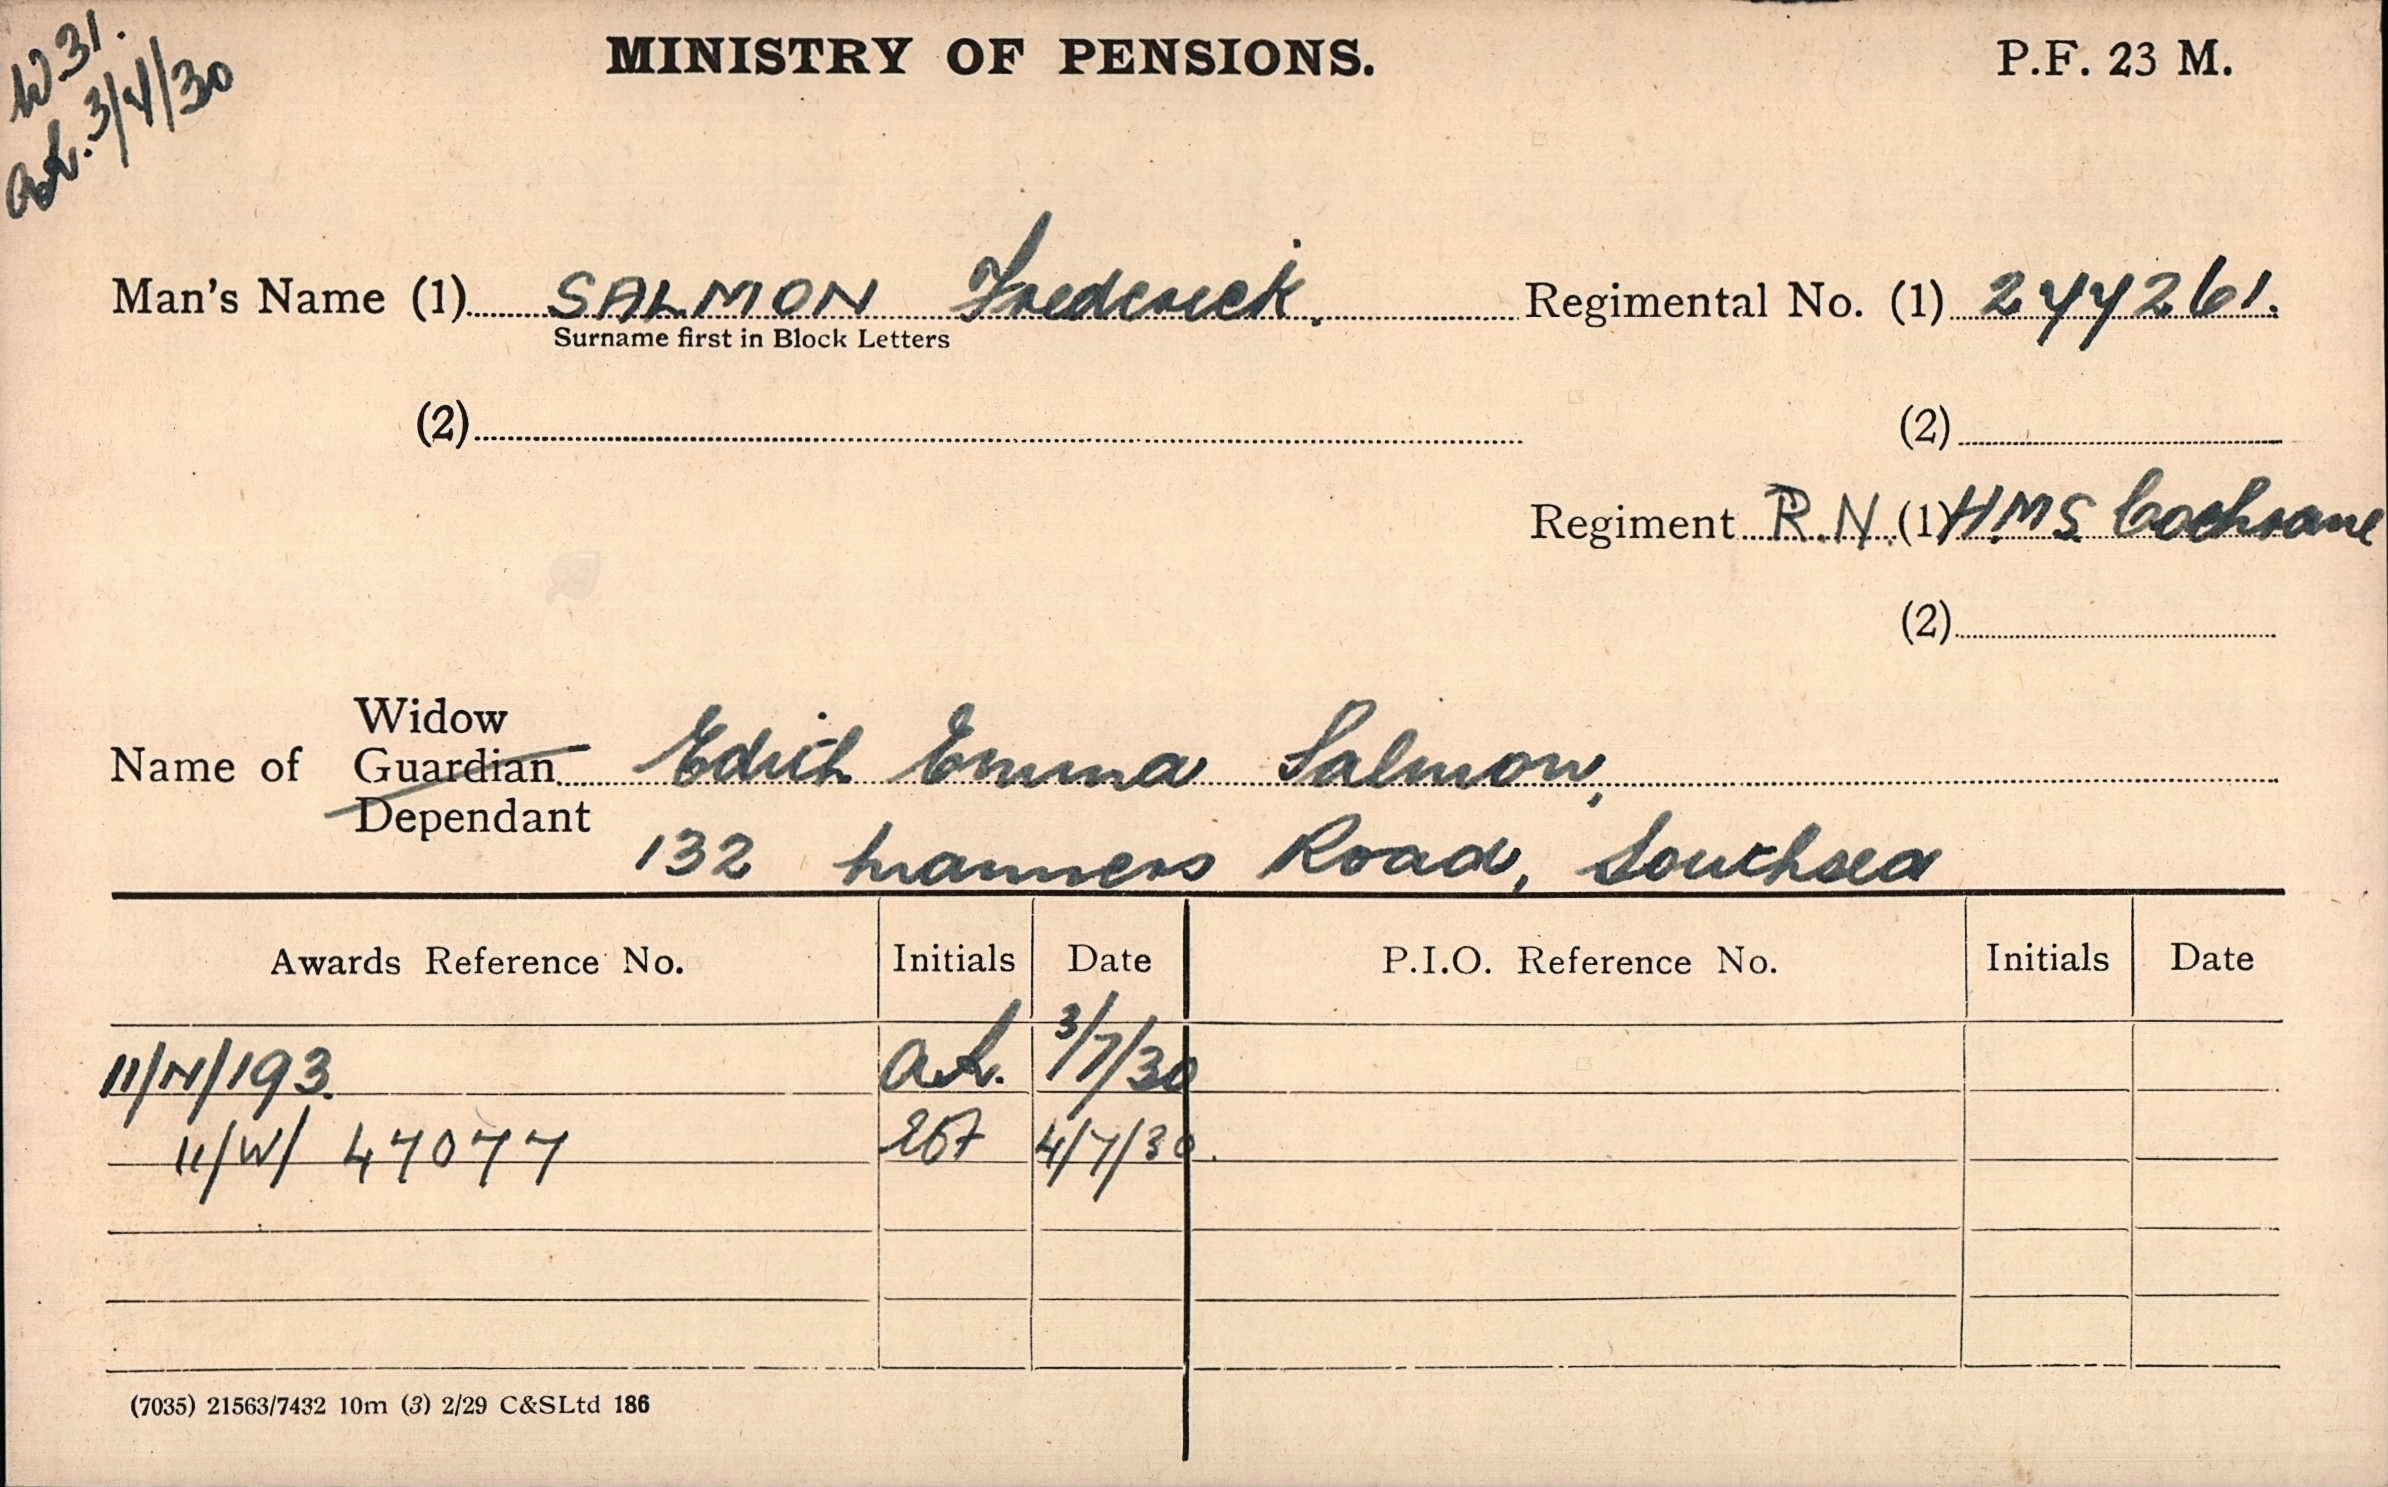 W31.
A.L. 3/7/30
MINISTRY OF PENSIONS.
P.F. 23 M.
Man's Name (1) SALMON Frederick. Regimental No. (1) 244261.
Surname first in Block Letters
(2) (2)
Regiment R.N. (1) HMS Cochrane
(2)
Widow
Name of Guardian Edith Emma Salmon,
Dependant
132 Manners Road, Southsea
Awards Reference No. Initials Date P.I.O. Reference No. Initials Date
11/N/193. A.L. 3/7/30
11/W/ 47077 4/7/30.
(7035) 21563/7432 10m (3) 2/29 C&SLtd 186